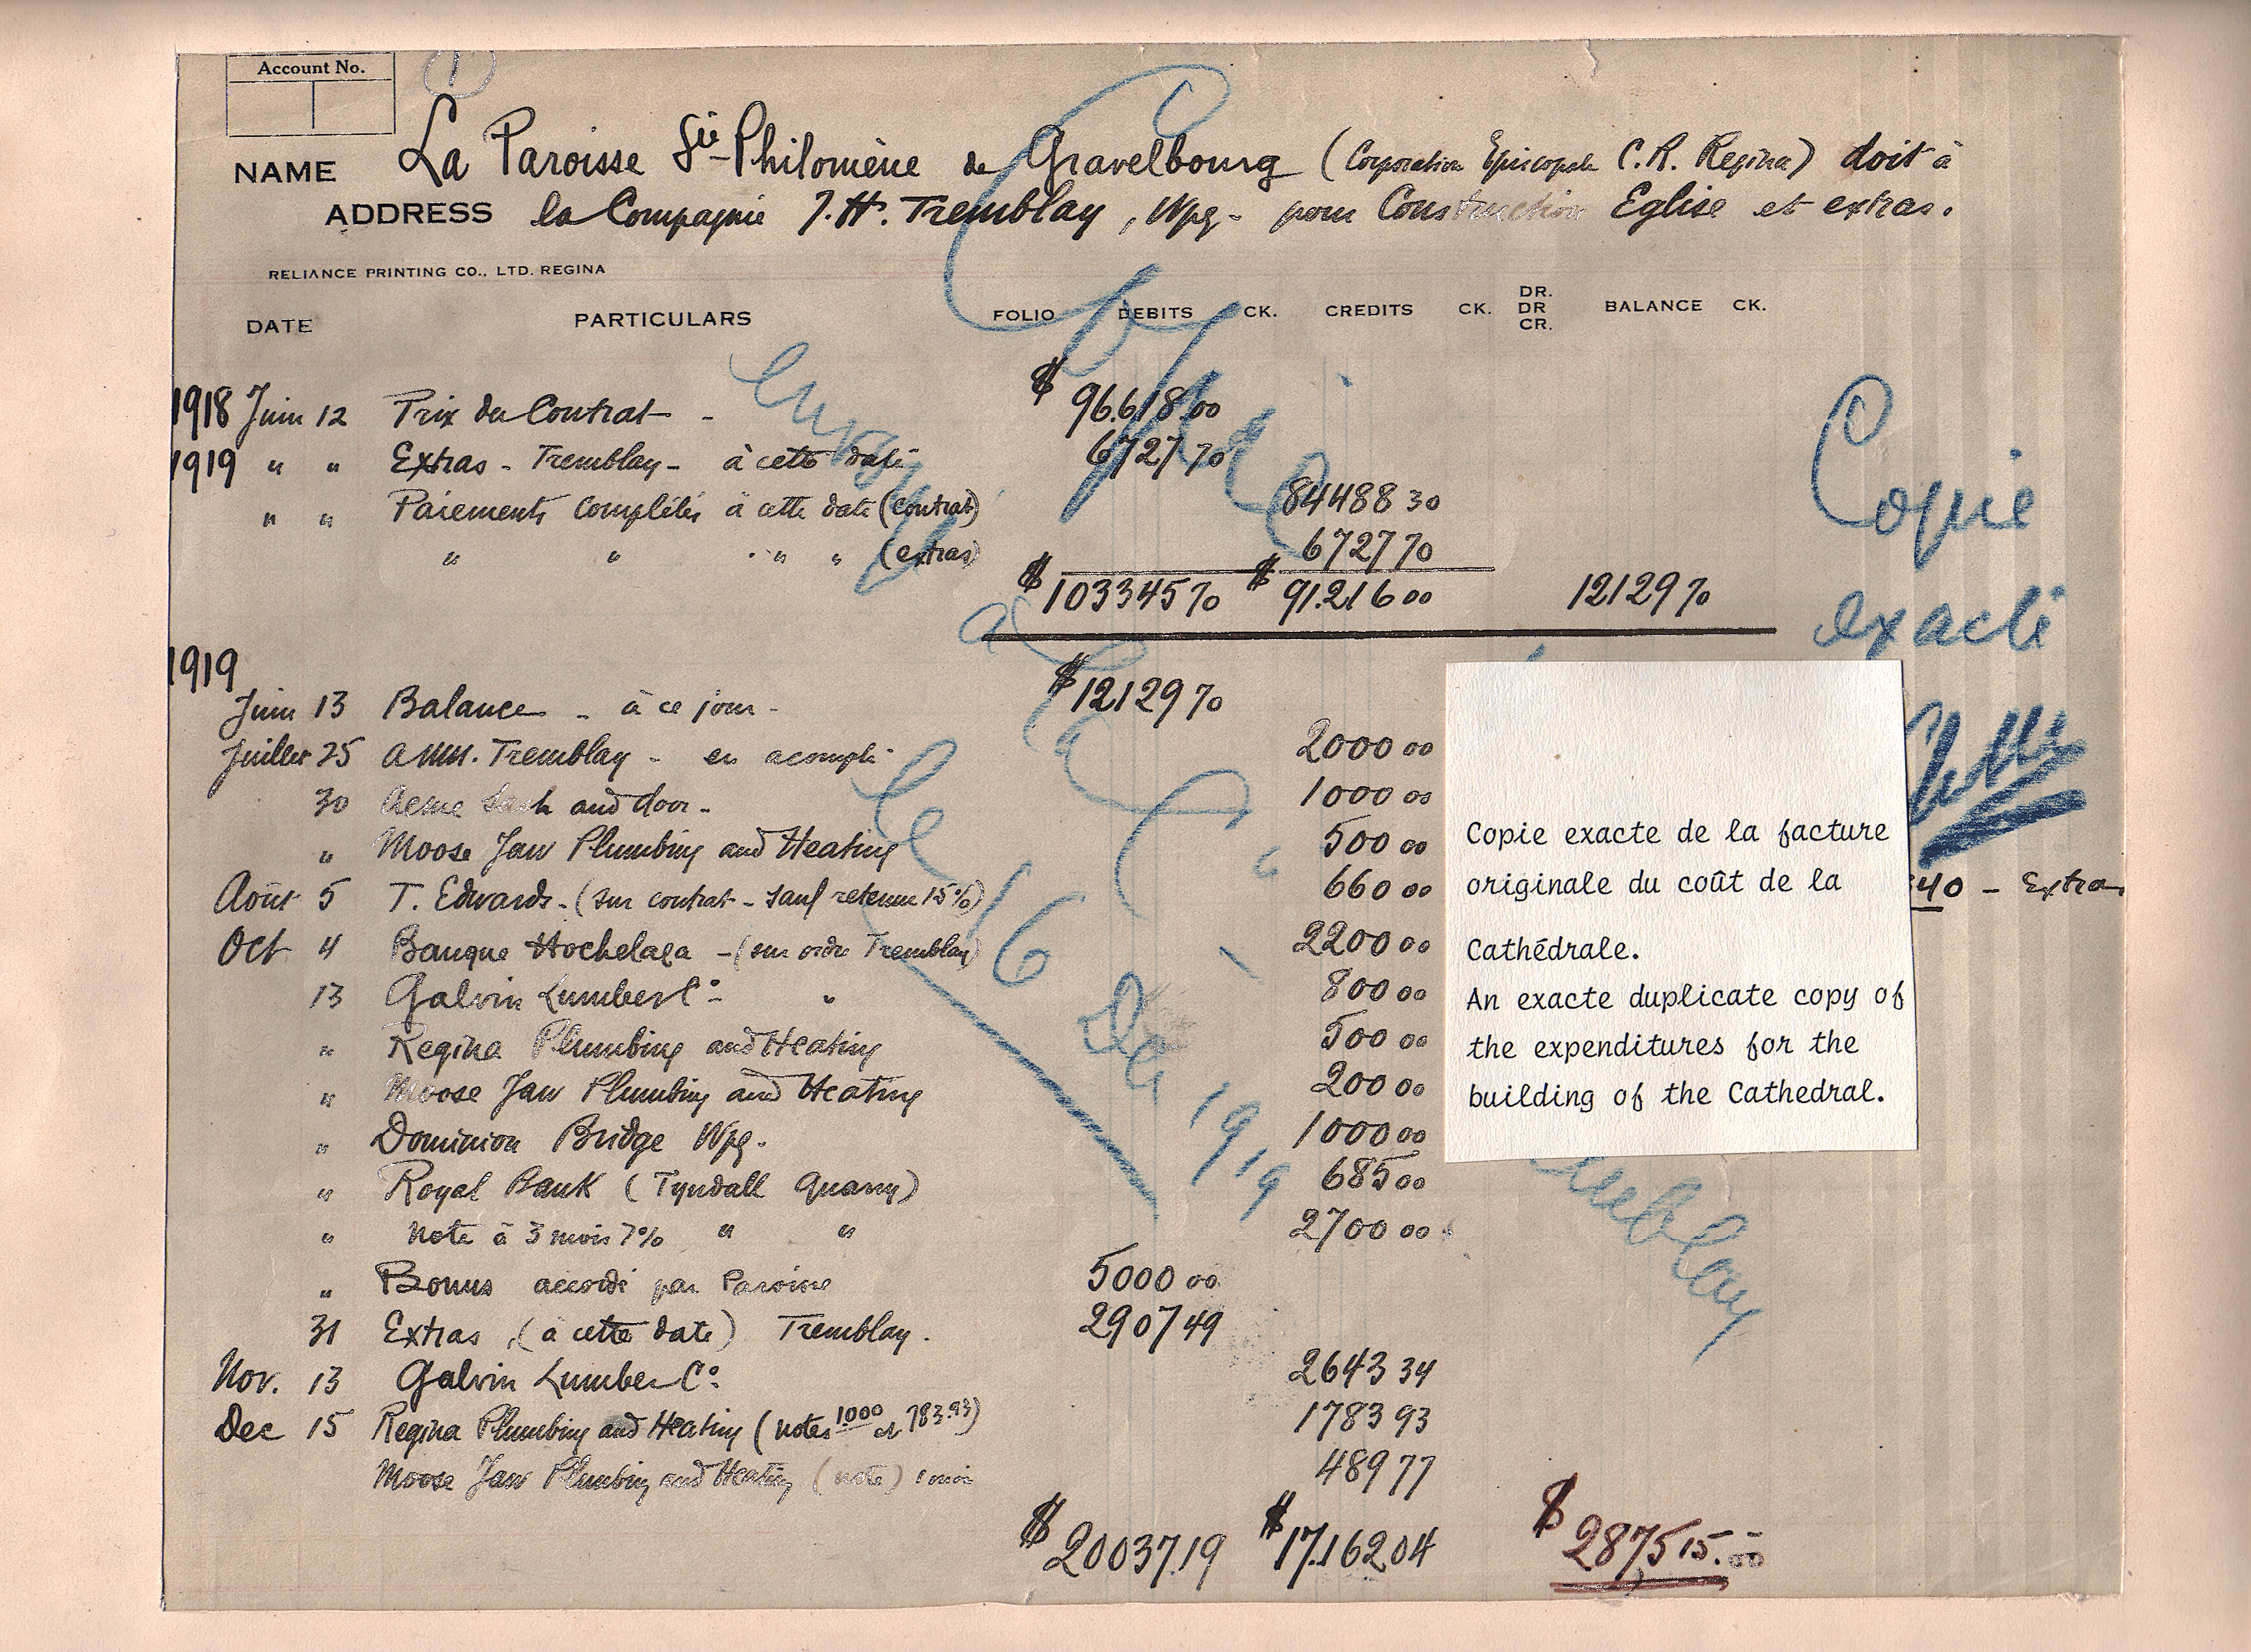 Account No.
1
NAME La Paroisse Ste-Philomène de Gravelbourg (Corporation Episcopale C.R. Regina) doit à
ADDRESS la Compagnie J.H. Tremblay, Wpg - pour Construction Eglise et extras.
RELIANCE PRINTING CO., LTD. REGINA
DATE PARTICULARS FOLIO DEBITS CK. CREDITS CK. DR. DR CR. BALANCE CK.
1918 Juin 12 Prix du Contrat - $ 96.618.00
1919 " " Extras - Tremblay - à cette date 6727 70
" " Paiements complétés à cette date (contrat) 84488 30
" " " " (extras) 6727 70
$ 103345 70 $ 91.216 00 12129 70
1919
Juin 13 Balance - à ce jour - $ 12129 70
Juillet 25 Tremblay - en acompte 2000 00
30 Acme Sash and door - 1000 00
" Moose Jaw Plumbing and Heating 500 00
Août 5 T. Edwards - (sur contrat - sauf retenue 15%) 660 00
Oct 4 Banque Hochelaga - (sur ordre Tremblay) 2200 00
13 Galvin Lumber Co - " 800 00
" Regina Plumbing and Heating 500 00
" Moose Jaw Plumbing and Heating 200 00
" Dominion Bridge Wpg. 1000 00
" Royal Bank (Tyndall Quarry) 685 00
" Note à 3 mois 7% " " 2700 00
" Bonus accordé par Paroisse 5000 00
31 Extras, (à cette date) Tremblay. 2907 49
Nov. 13 Galvin Lumber Co. 2643 34
Dec 15 Regina Plumbing and Heating (notes 1.000 et 783.93) 1783 93
Moose Jaw Plumbing and Heating (note) 1 mois 489 77
$ 20037.19 $ 17.162 04 $ 2875 15.
Copie
exacte
40 - Extra
Copie exacte de la facture
originale du coût de la
Cathédrale.
An exacte duplicate copy of
the expenditures for the
building of the Cathedral.
Copie
envoyée
à
le 16 Dec 1919